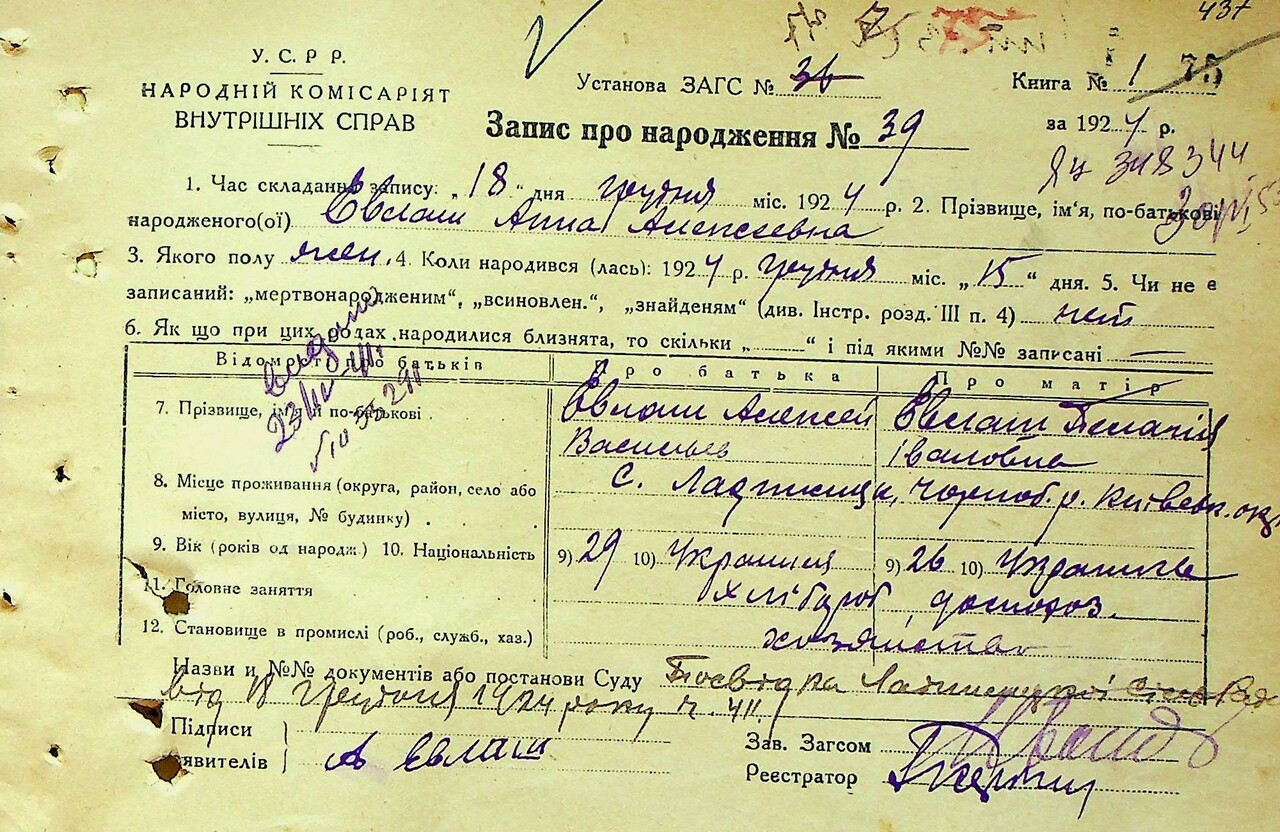 437
У.С.Р.Р.
НАРОДНІЙ КОМІСАРІЯТ
ВНУТРІШНІХ СПРАВ
Установа ЗАГС № 36
Книга № 1 75
Запис про народження № 39
за 1924 р.
ЯЦ 348344
1. Час складання запису: „18“ дня грудня міс. 1924 р. 2. Прізвище, ім'я, по-батькові
народженого(ої) Євлаш Анна Алексеевна
3. Якого полу жен. 4. Коли народився (лась): 1924 р. грудня міс. „15“ дня. 5. Чи не є
записаний: „мертвонародженим“, „всиновлен.“, „знайденям“ (див. Інстр. розд. III п. 4) нет
6. Як що при цих родах народилися близнята, то скільки „ “ і під якими №№ записані —
Відомості про батьків Про батька Про матір
7. Прізвище, ім'я й по-батькові . Євлаш Алексей Євлаш Пелагія
Васильев Івановна
8. Місце проживання (округа, район, село або С. Ладижичи, Чорноб. р. Київськ. окр.
місто, вулиця, № будинку) .
9. Вік (років од народж.) 10. Національність 9) 29 10) Украинця 9) 26 10) Украинка
11. Головне заняття Хлібороб домохоз.
12. Становище в промислі (роб., служб., хаз.) хозяйство
Назви и №№ документів або постанови Суду Посвідка Ладижицької сільради
від 18 грудня 1924 року ч. 411
Підписи
заявителів А Євлаш
Зав. Загсом
Реєстратор